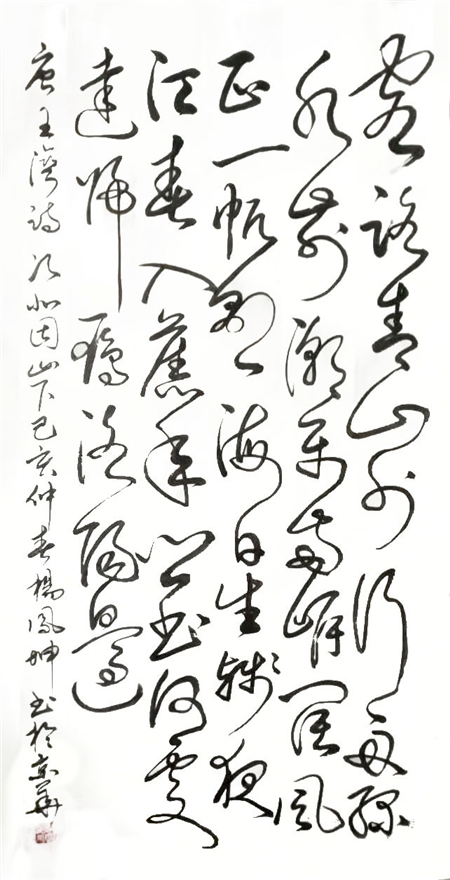 客路青山外行舟綠
水前潮平兩岸闊風
正一帆懸海日生殘夜
江春入舊年鄉書何處
達歸雁洛陽邊
唐王灣詩次北固山下己亥仲春楊鳳坤書於京華